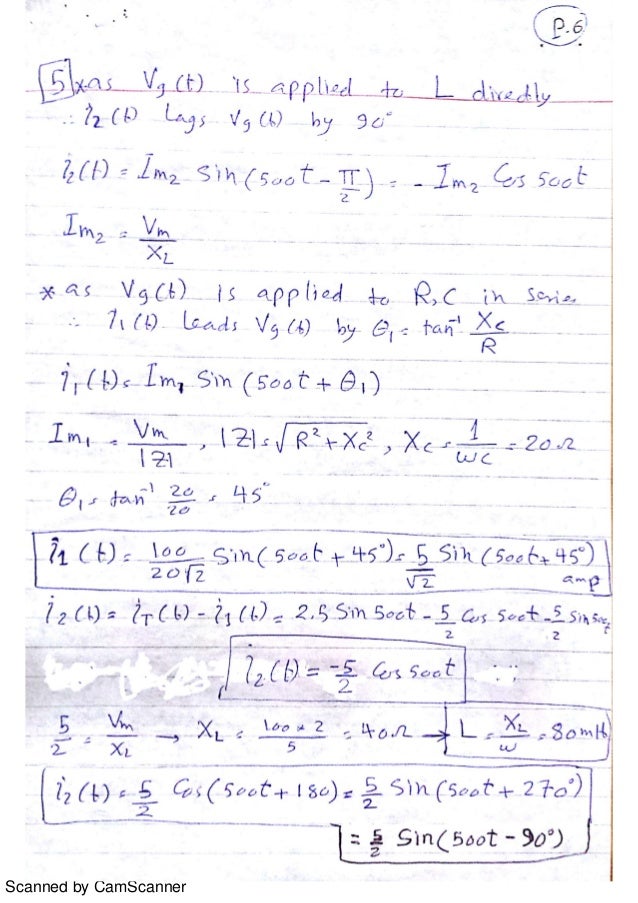 P.6
5 * as Vg(t) is applied to L directly
∴ i₂(t) Lags Vg(t) by 90°
i₂(t) = Im₂ Sin(500t - π/2) = - Im₂ Cos 500t
Im₂ = Vm/XL
* as Vg(t) is applied to R,C in series
∴ i₁(t) Leads Vg(t) by θ₁ = tan⁻¹ Xc/R
i₁(t) = Im₁ Sin (500t + θ₁)
Im₁ = Vm/|Z| , |Z| = √(R² + Xc²) , Xc = 1/ωC = 20Ω
θ₁ = tan⁻¹ 20/20 = 45°
i₁(t) = 100/20√2 Sin(500t + 45°) = 5/√2 Sin(500t + 45°) amp
i₂(t) = i_T(t) - i₁(t) = 2.5 Sin 500t - 5/2 Cos 500t - 5/2 Sin 500t
i₂(t) = -5/2 Cos 500t
5/2 = Vm/XL → XL = 100*2/5 = 40Ω → L = XL/ω = 80mH
i₂(t) = 5/2 Cos(500t + 180) = 5/2 Sin(500t + 270°)
= 5/2 Sin(500t - 90°)
Scanned by CamScanner